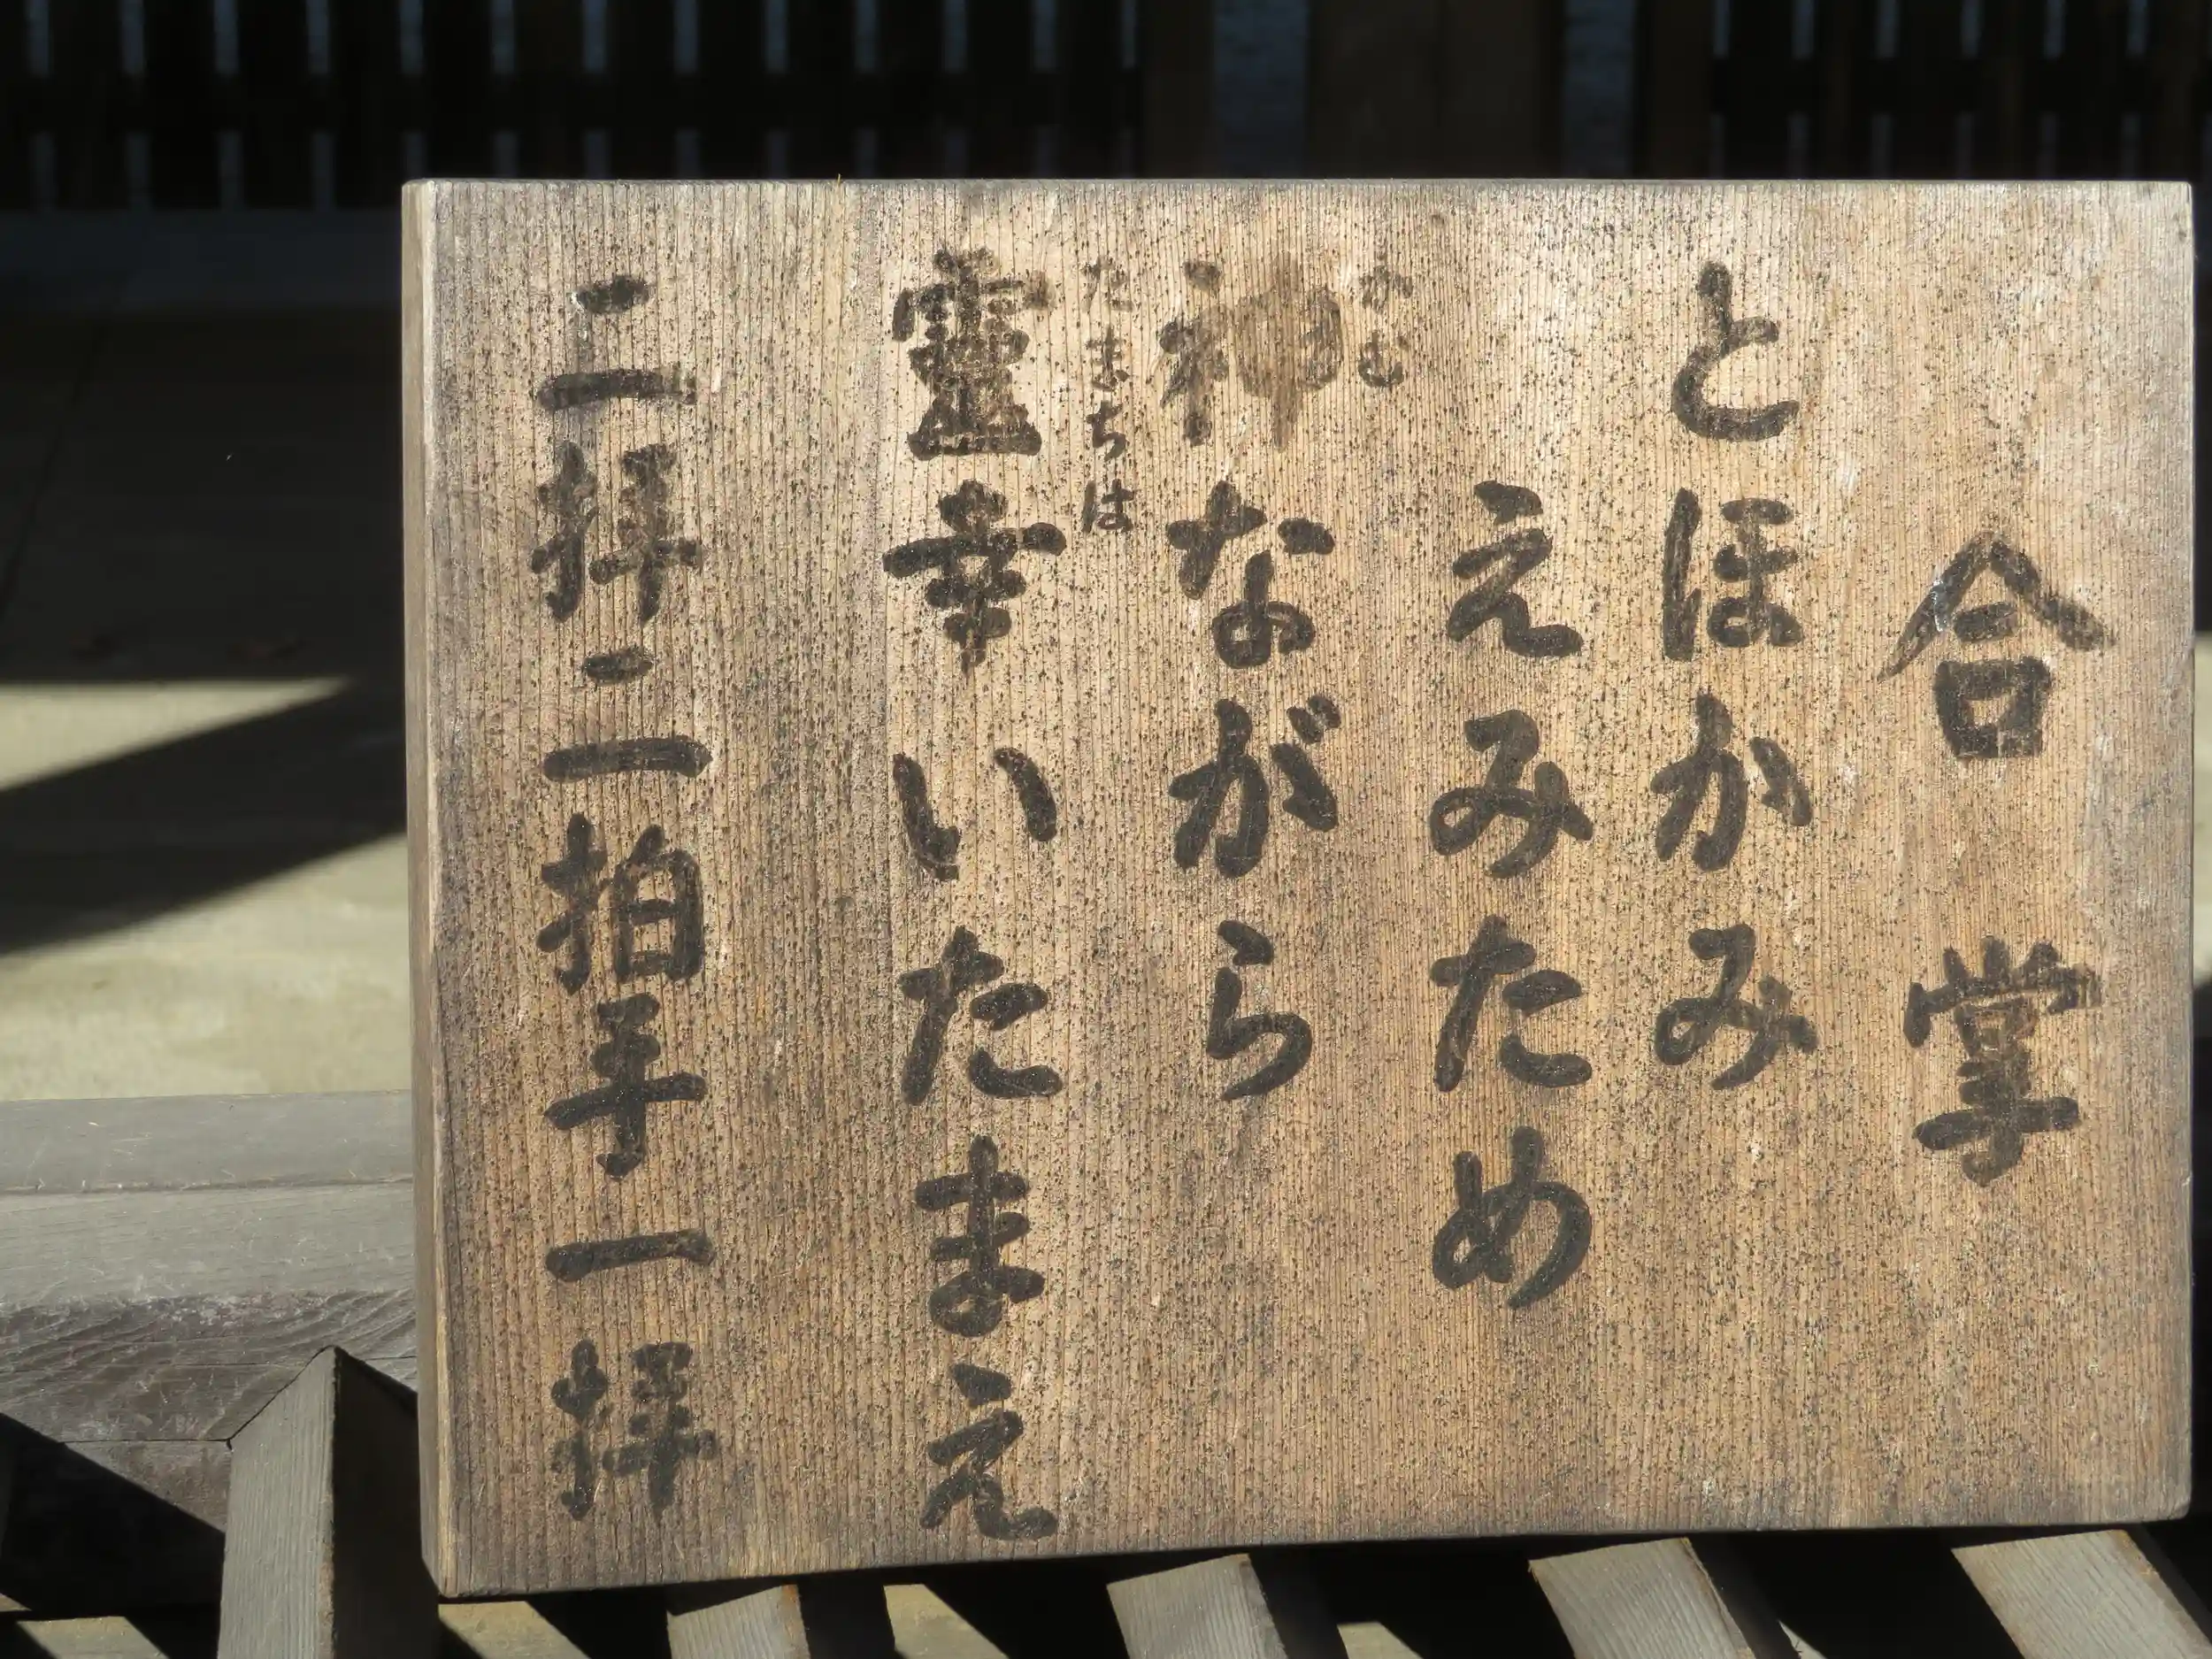 合掌
とほかみ
えみため
神ながら
かむ
靈幸いたまえ
たまちは
二拝二拍手一拝